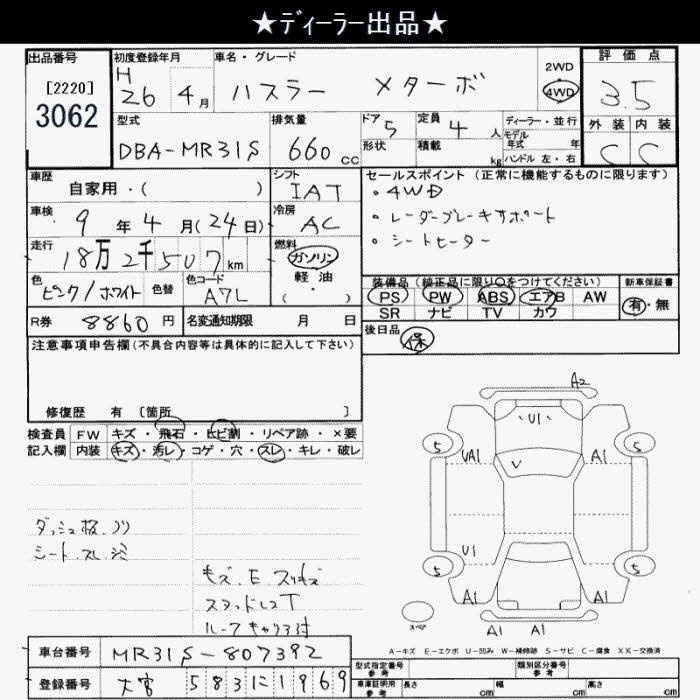 ★ディーラー出品★
出品番号
[2220]
3062
初度登録年月
H
26年 4月
車名・グレード
ハスラー メターボ
2WD
4WD
評価点
3.5
型式
DBA-MR31S
排気量
660 cc
ドア 5
形状
定員 4 人
積載 kg
ディーラー・並行
モデル年式 年
ハンドル 左・右
外装 内装
C C
車歴
自家用・( )
シフト
IAT
セールスポイント (正常に機能するものに限ります)
・4WD
・レーダーブレーキサポート
・シートヒーター
車検
9年 4月(24日)
冷房
AC
走行
18万2千507km
燃料
ガソリン
軽・油
( )
色
ピンク/ホワイト
色替
色コード
A7L
装備品 (純正品に限り○をつけてください)
PS PW ABS エアB AW
SR ナビ TV カワ
新車保証書
有・無
R券 8860円
名変通知期限 月 日
後日品
保
注意事項申告欄(不具合内容等は具体的に記入して下さい)
修復歴 有 〔箇所 〕
検査員記入欄
FW キズ・飛石・ヒビ割・リペア跡・×要
内装 キズ・汚レ・コゲ・穴・スレ・キレ・破レ
シート スレ シミ
キズ、E、スリキズ
スタッドレスT
ルーフキャリア付
A2
U1
5 UA1 V A1 5
U1
5 5
A1 A1
A1 A1
スペア
A-キズ E-エクボ U-凹み W-補修跡 S-サビ C-腐食 XX-交換済
車台番号 MR31S-807392
登録番号 大宮 583に1969
型式指定番号 参考
類別区分番号 参考
車庫証明用 参考
長さ cm
幅 cm
高さ cm